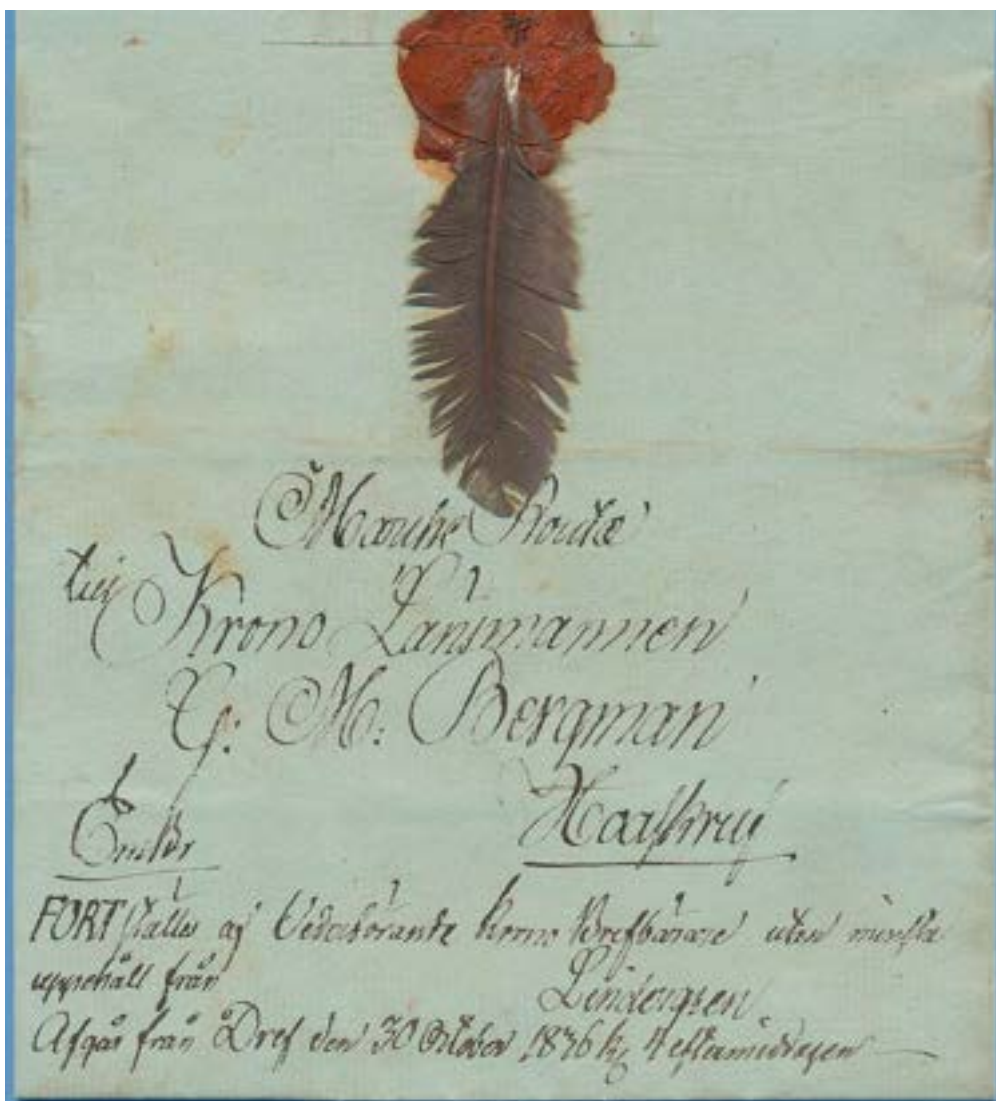 Marche Routte
till
Krono Länsmannen
G: M: Bergman
FORTställes af Vederbörande Krono Brefbärare utan minsta
uppehåll från
Lindegren
Afgår från Dref den 30 October 1836 kl 4 eftermiddagen